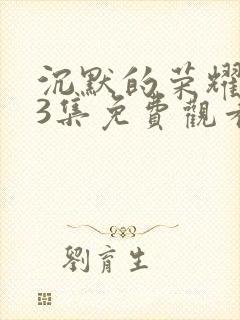 沉默的荣耀
3集免費觀看
劉育生